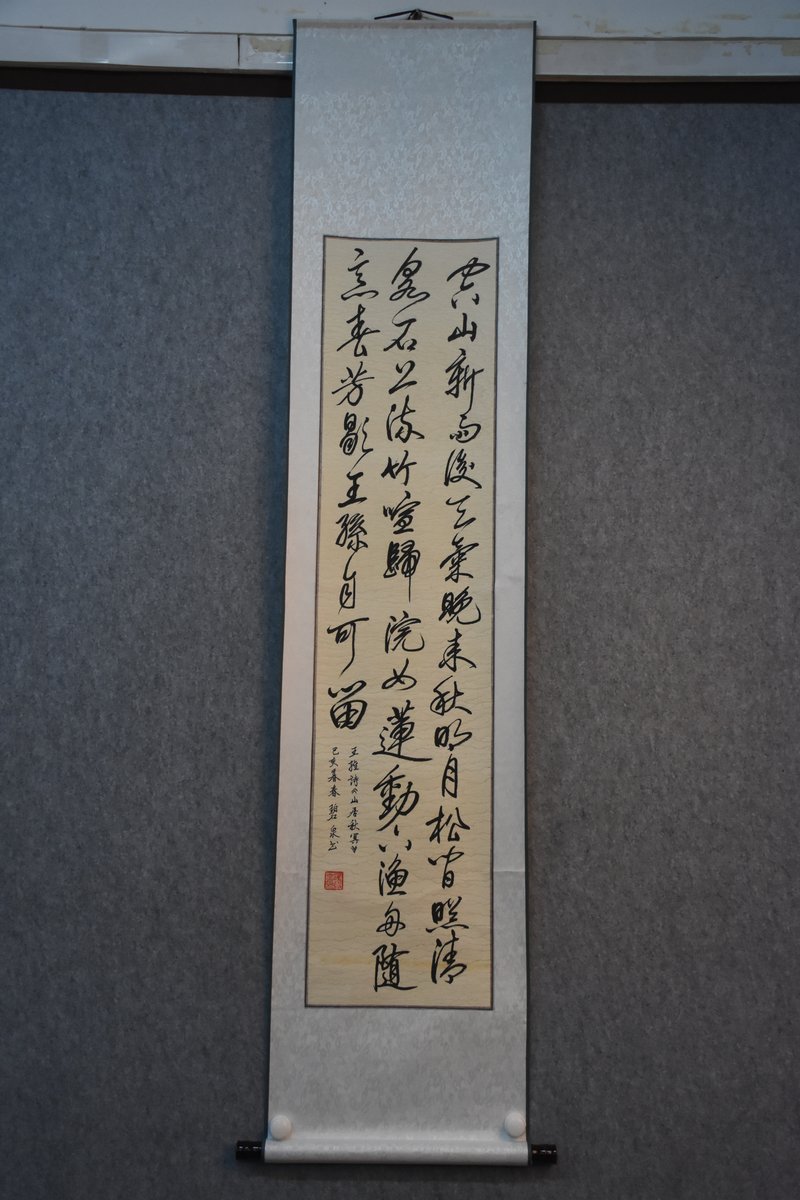 空山新雨後天氣晚來秋明月松間照清
泉石上流竹喧歸浣女蓮動下漁舟隨
意春芳歇王孫自可留
王維詩《山居秋冥》
己亥暮春 碧泉书